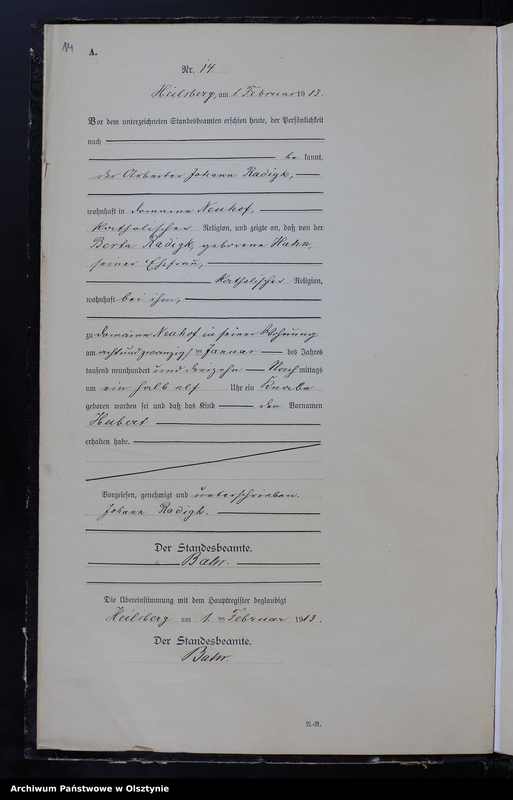 14
A.
Nr. 14.
Heilsberg, am 1 Februar 1913.
Vor dem unterzeichneten Standesbeamten erschien heute, der Persönlichkeit
nach
be kannt,
der Arbeiter Johann Radigk,
wohnhaft in Domaine Neuhof,
katholischer Religion, und zeigte an, daß von der
Berta Radigk, geborene Hahn,
seiner Ehefrau,
katholischer Religion,
wohnhaft bei ihm,
zu Domaine Neuhof in seiner Wohnung
am achtundzwanzig ten Januar des Jahres
tausend neunhundert und dreizehn Nach mittags
um ein halb elf Uhr ein Knabe
geboren worden sei und daß das Kind den Vornamen
Hubert
erhalten habe.
Vorgelesen, genehmigt und unterschrieben.
Johann Radigk.
Der Standesbeamte.
Die Übereinstimmung mit dem Hauptregister beglaubigt
Heilsberg am 1. ten Februar 1913.
Der Standesbeamte.
N.-R.
Archiwum Państwowe w Olsztynie